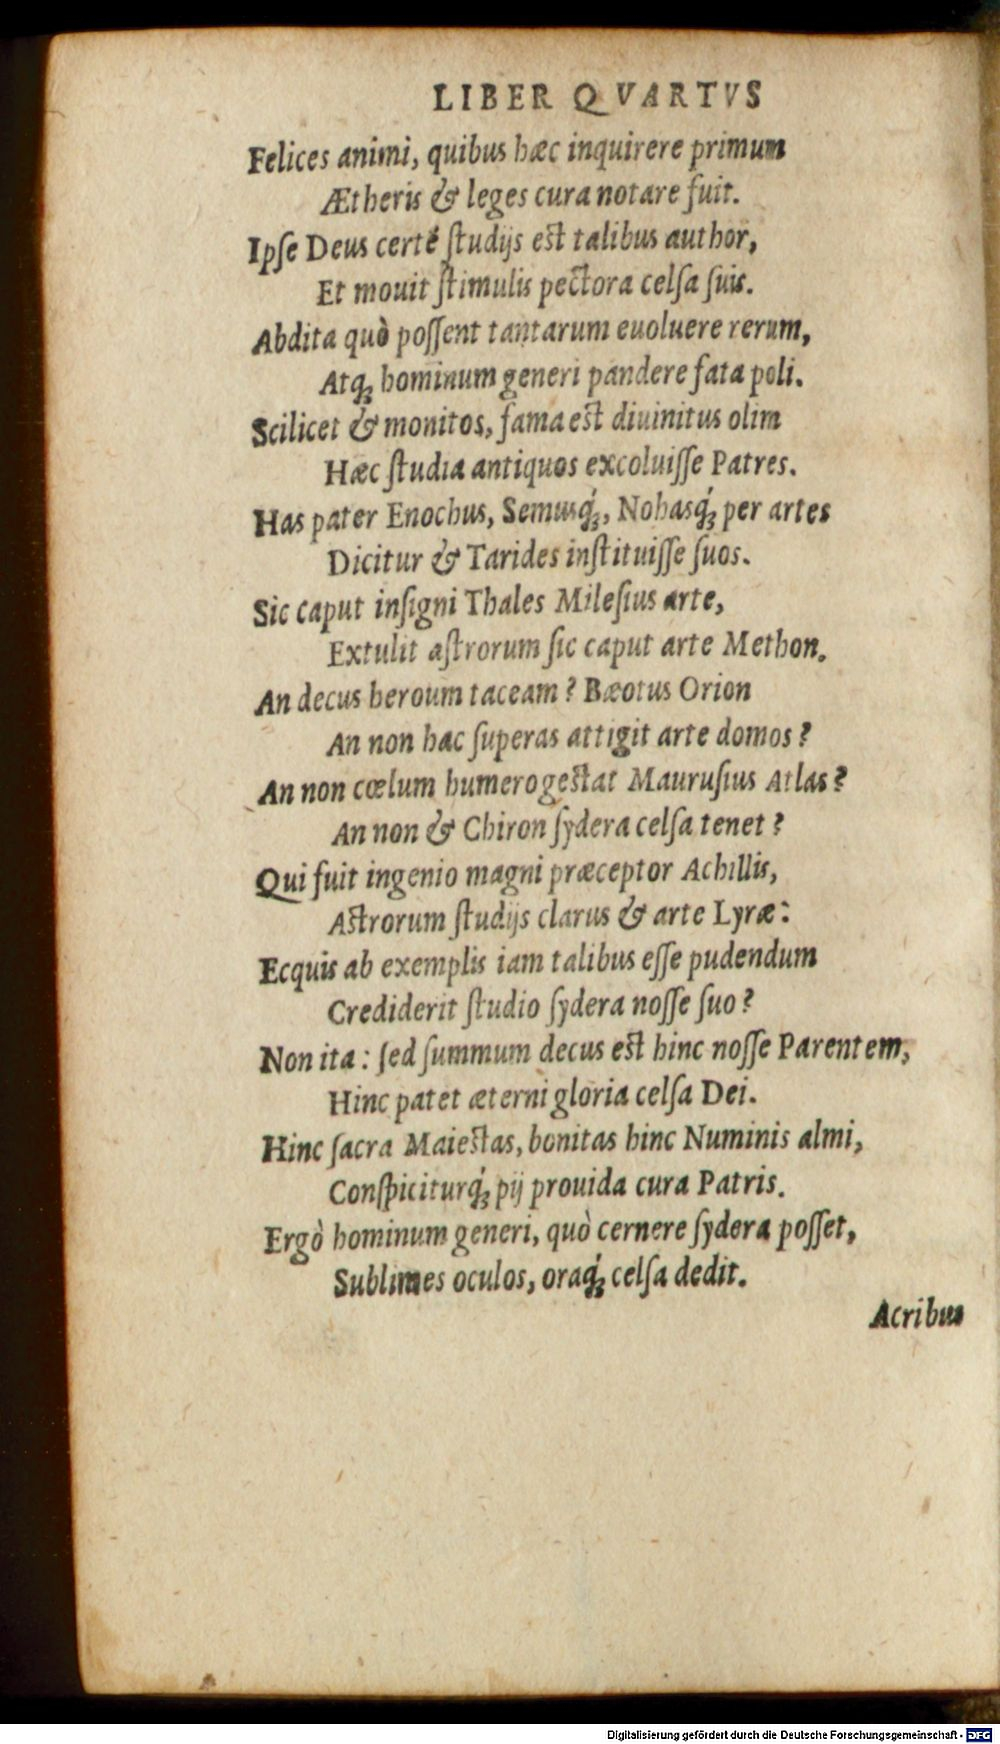 LIBER QVARTVS
Felices animi, quibus hæc inquirere primum
Ætheris & leges cura notare fuit.
Ipſe Deus certé ſtudijs est talibus author,
Et mouit ſtimulis pectora celſa ſuis.
Abdita quò poſſent tantarum euoluere rerum,
Atq; hominum generi pandere fata poli.
Scilicet & monitos, fama est diuinitus olim
Hæc ſtudia antiquos excoluiſſe Patres.
Has pater Enochus, Semusq́;, Nohasq́; per artes
Dicitur & Tarides inſtituiſſe ſuos.
Sic caput inſigni Thales Mileſius arte,
Extulit aſtrorum ſic caput arte Methon.
An decus heroum taceam? Bæotus Orion
An non hac ſuperas attigit arte domos?
An non cœlum humero gestat Mauruſius Atlas?
An non & Chiron ſydera celſa tenet?
Qui fuit ingenio magni præceptor Achillis,
Astrorum ſtudijs clarus & arte Lyræ:
Ecquis ab exemplis iam talibus eſſe pudendum
Crediderit ſtudio ſydera noſſe ſuo?
Non ita: ſed ſummum decus est hinc noſſe Parentem,
Hinc patet æterni gloria celſa Dei.
Hinc ſacra Maiestas, bonitas hinc Numinis almi,
Conſpiciturq́; pij prouida cura Patris.
Ergò hominum generi, quò cernere ſydera poſſet,
Sublimes oculos, oraq́; celſa dedit.
Acribus
Digitalisierung gefördert durch die Deutsche Forschungsgemeinschaft - DFG